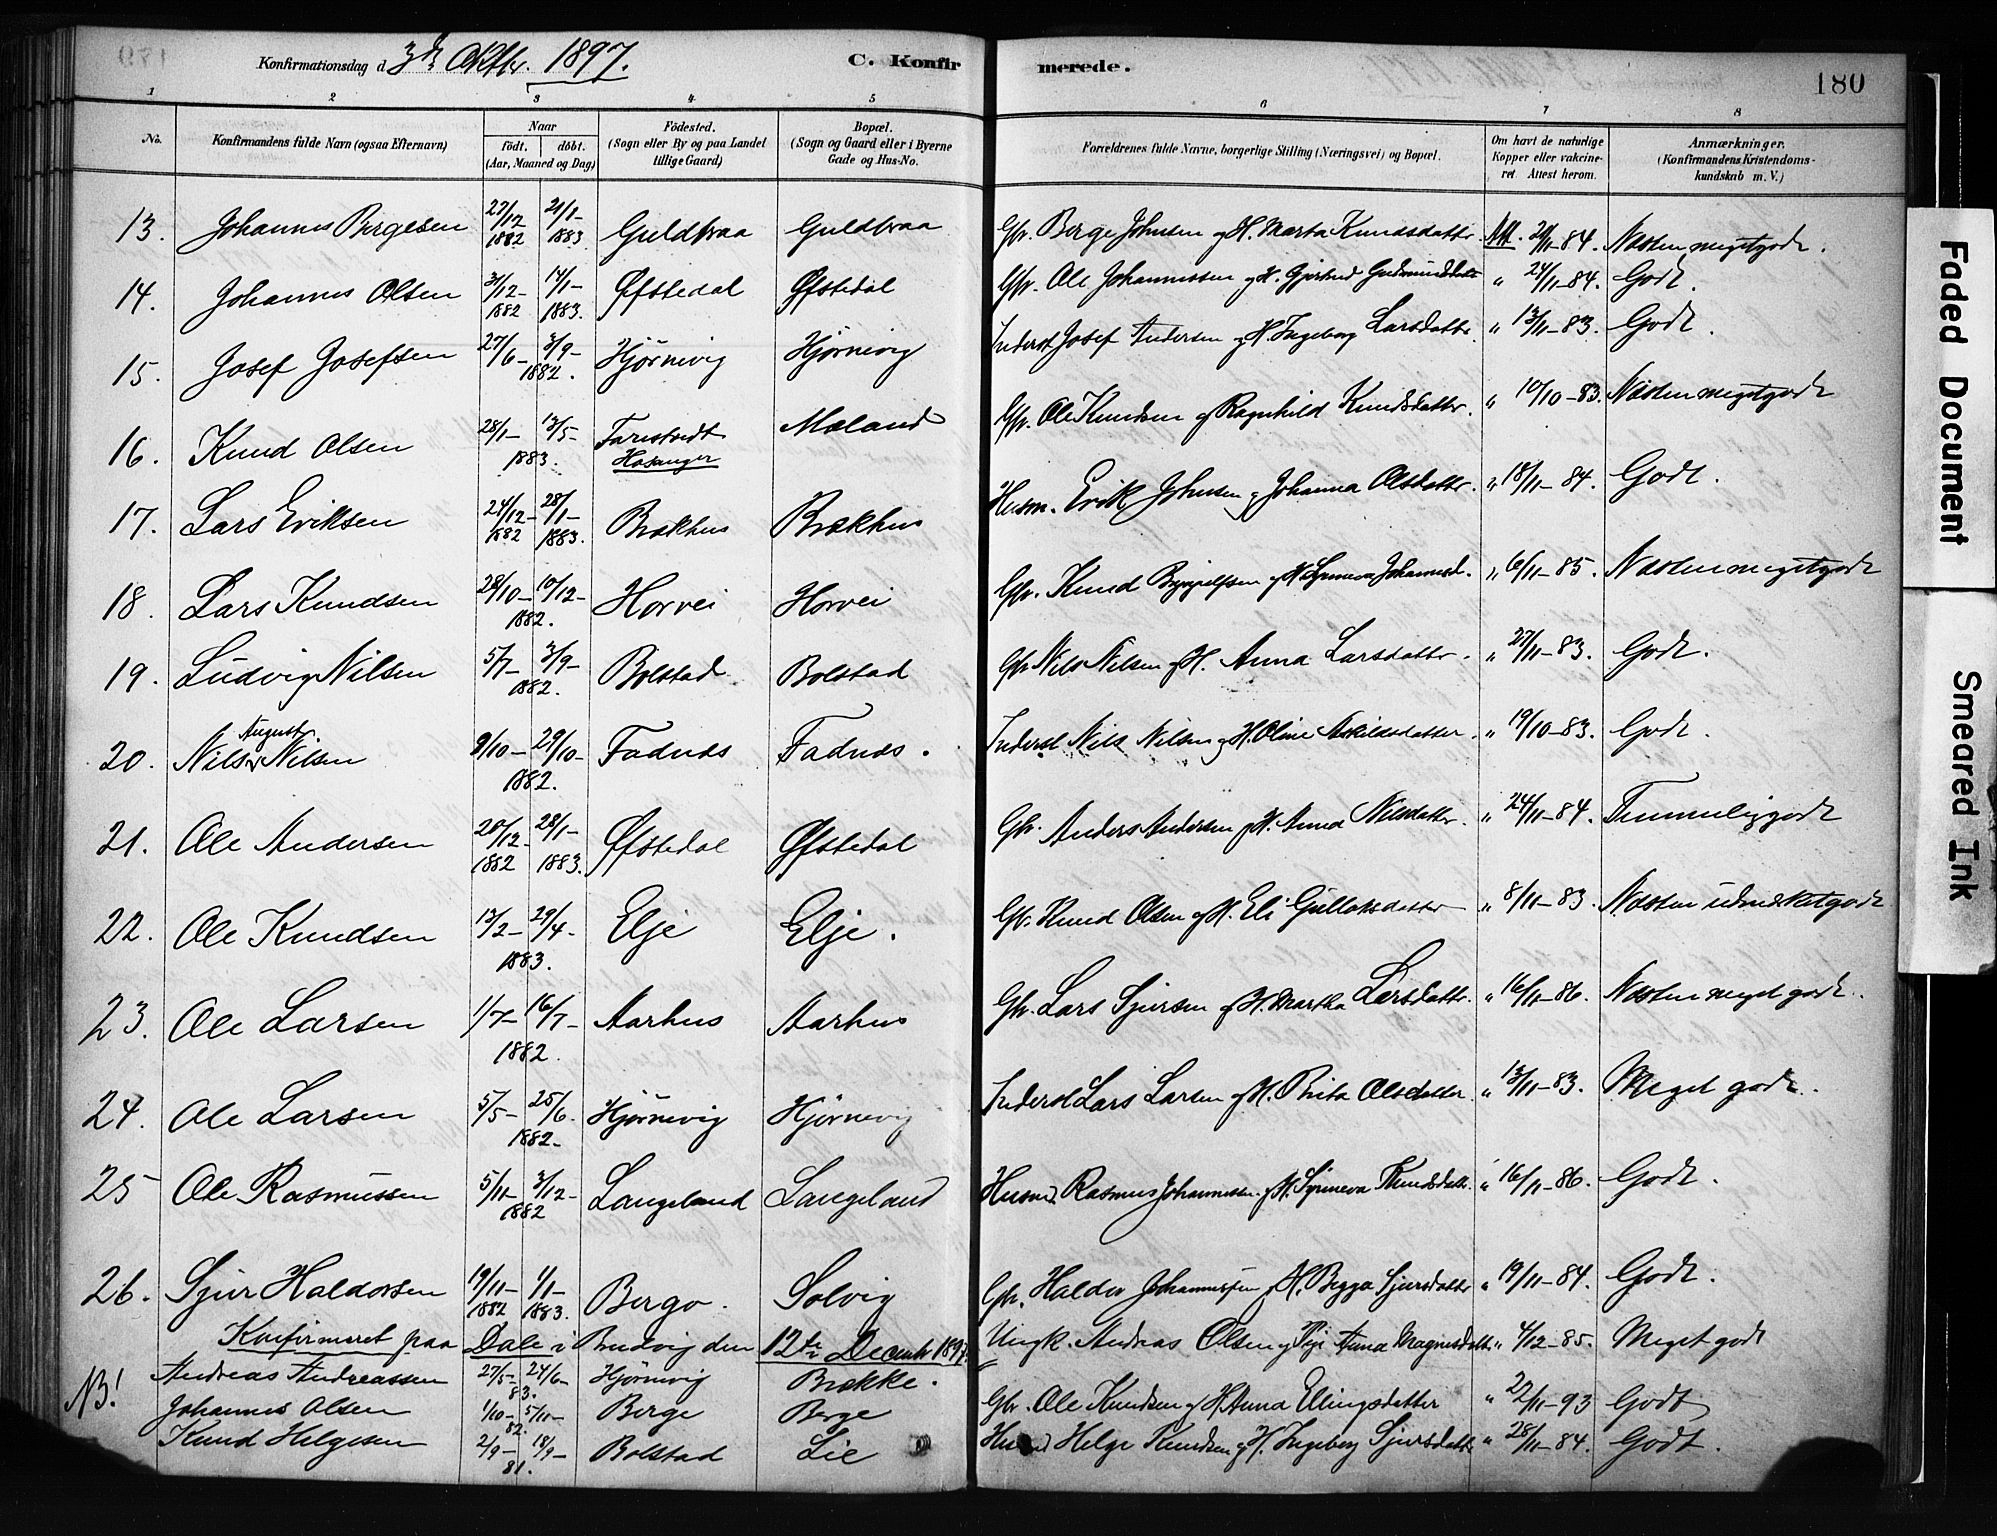 Konfirmationsdag d. 3de Oktbr. 1897. C. Konfirmerede. 180
1 2 3 4 5 6 7 8
No. Konfirmandens fulde Navn (ogsaa Efternavn) Naar födt. döbt. (Aar, Maaned og Dag) Födested. (Sogn eller By og paa Landet tillige Gaard) Bopæl. (Sogn og Gaard eller i Byerne Gade og Hus-No. Forældrenes fulde Navne, borgerlige Stilling (Næringsvei) og Bopæl. Om havt de naturlige Kopper eller vakcineret. Attest herom. Anmærkninger. (Konfirmandens Kristendomskundskab m. V.)
13. Johannes Bergesen 27/12 1882 21/1 1883 Guldbraa Guldbraa Gbr. Berge Johnsen og H. Marta Knudsdatter Att. 84. Næsten megetgodt.
14. Johannes Olsen 31/12 1882 14/1 1883. Øfstedal Øfstedal Gbr. Ole Johannessen og H. Gjertrud " 24/11-84. Godt.
15. Josef Josefsen 27/6 3/9 1882. Hjørnevig Hjørnevig Inderst Josef Andersen og H. Ingeborg Larsdatter " 13/11-83. Godt.
16. Knud Olsen 28/1 13/5 1883. Hosanger Moland Gbr. Ole Knudsen og Ragnhild Knudsdatter. " 10/10-83. Næsten megetgodt
17. Lars Eriksen 24/12 1882 28/1 1883. Brækhus Brækhus Husm. Erik Johnsen og Johanna Olsdatter. " 18/11-84. Godt.
18. Lars Knudsen 10/12 1882. Horvei Horvei Gbr. Knud og H. Synneva Johannesd. " 6/11-85. Næsten megetgodt
19. Ludvig Nilsen 5/7 3/9 1882. Bolstad Bolstad Gbr. Nils Nilsen og H. Anna Larsdatter. " 27/11-83. Godt.
20. Nils August Nilsen 9/10 29/10 1882. Fadnæs Fadnæs. Inderst Nils Nilsen og H. Oline Askildsdatter. " 19/10-83. Godt.
21. Ole Andersen 20/12 1882 28/1 1883. Øfstedal Øfstedal Gbr. Anders Andersen og H. Anna Nilsdatter. " 24/11-84. Temmeliggodt
22. Ole Knudsen 13/2 29/4 1883. Elje Elje. Gbr. Knud Olsen og H. Eli Gulleiksdatter " 8/11-83. Næsten udmerketgodt
23. Ole Larsen 1/7 16/7 1882. Aarhus Aarhus Gbr. Lars Sjursen og H. Martha Larsdatter. " 16/11-86. Næsten meget godt.
24. Ole Larsen 5/5 25/6 1882. Hjørnevig Hjørnevig Inderst Lars Larsen og H. Brita Olsdatter. " 13/11-83. Meget godt.
25 Ole Rasmussen 5/11 3/12 1882 Langeland Langeland Husmd. Rasmus Johannessen og H. Synneva Knudsdatt. " 16/11-86. Godt.
26. Sjur Haldorsen 19/11 1882 1/1 1883. Bergo. Solvig Gbr. Haldor Johannessen og H. Begga Sjursdatter " 19/11-84. Godt.
Konfirmeret paa Dale i Bruvig den 12te Decemb 1897.
NB! Andreas Andreassen 27/5 24/6 83. Hjørnevig Brække. Ungk. Andreas Olsen og Pige Anna Magnusdatt. " 4/12-85. Meget godt
Johannes Olsen 1/10 5/11 82. Berge Berge Gbr. Ole Knudsen og H. Anna Ellingsdatter " 27/11-93 Godt
Knud Helgesen 2/9 18/9 81. Bolstad Lie Husmd Helge Knudsen og H. Ingeborg Sjursdatter " 28/11-84. Godt.
Faded Document
Smeared Ink